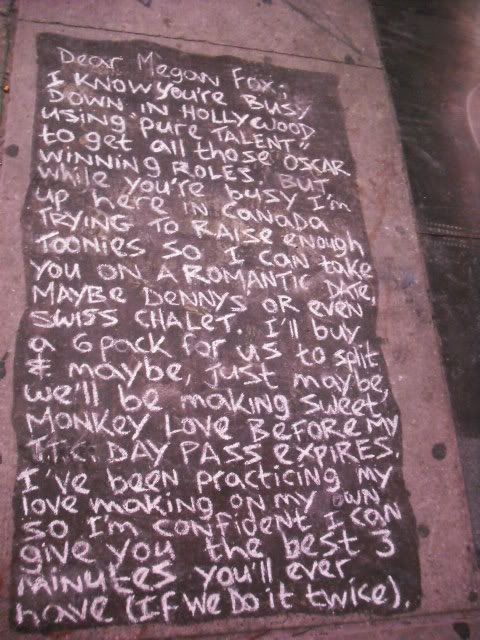 Dear Megan Fox,
I KNOW YOU'RE BUSY
DOWN IN HOLLYWOOD
using "pure TALENT"
to get all those OSCAR
WINNING ROLES. BUT
while you're busy I'm
up here in CANADA
TRYING TO RAISE enough
TOONIES SO I CAN take
YOU ON A ROMANTIC DATE,
MAYBE DENNYS OR even
SWISS CHALET. I'll buy
a 6 pack for us to split
& maybe, just maybe,
we'll be making sweet,
MONKEY LOVE BEFORE MY
TTC DAY PASS EXPIRES.
I've been practicing my
love making on my own
so I'm confident I can
give you the best 3
minutes you'll ever
have (If we Do it twice).